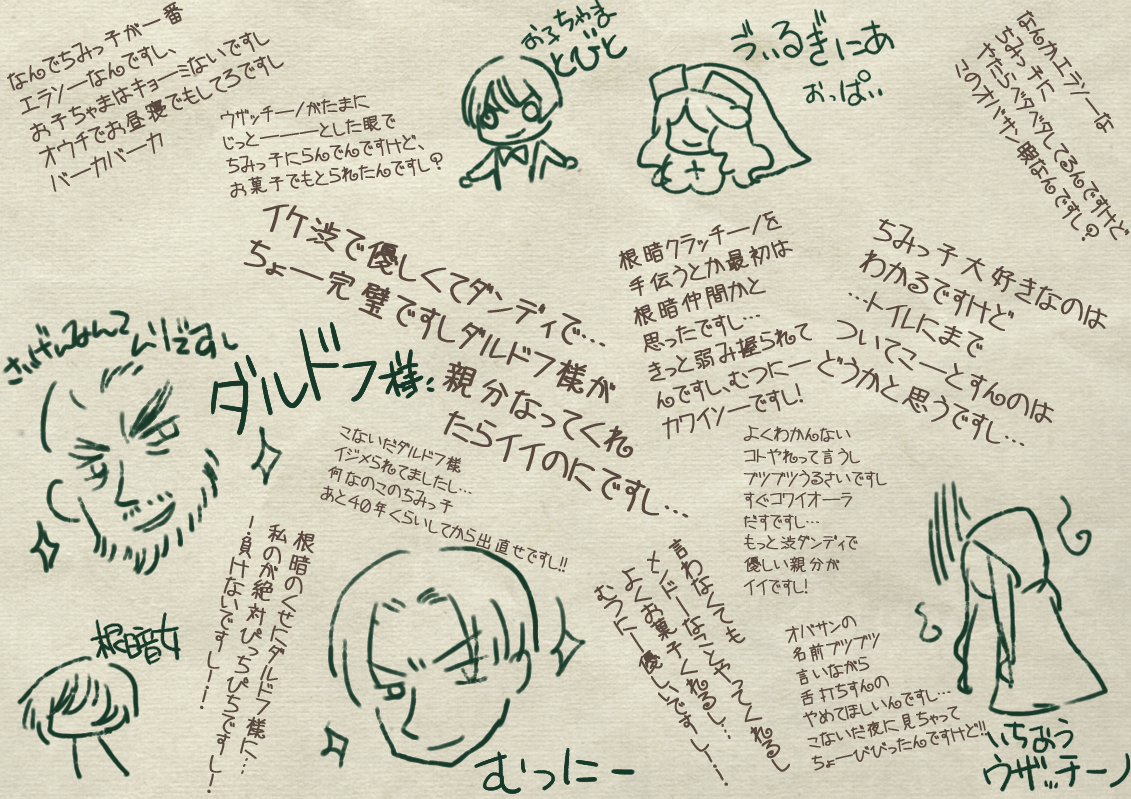 なんでちみっ子が一番
エラソーなんですし、
お子ちゃまはキョーミないですし
オウチでお昼寝でもしてろですし
バーカバーカ
ウザッチーノがたまに
じっと―――とした眼で
ちみっ子にらんでんですけど、
お菓子でもとられたんですし?
お子ちゃま
とびと
うぃるぎにあ
おっぱい
なんかエラソーな
ちみっ子に
やたらベタベタしてるんですけど
このオバサン暇なんですし?
イケ渋で優しくてダンディで…
ちょー完璧ですしダルドフ様が
親分なってくれ
たらイイのにですし…
根暗クラッチーノを
手伝うとか最初は
根暗仲間かと
思ったですし…
きっと弱み握られて
んですし、むつにー
カワイソーですし!
ちみっ子大好きなのは
わかるですけど
…トイレにまで
ついてこーとすんのは
どうかと思うですし…
さげみんで
いいですし
ダルドフ様:
こないだダルドフ様
イジメられてましたし…
何なのこのちみっ子
あと40年くらいしてから出直せですし!!
よくわかんない
コトやれって言うし
ブツブツうるさいですし
すぐコワイオーラ
だすですし…
もっと渋ダンディで
優しい親分が
イイですし!
根暗のくせにダルドフ様に…
私のが絶対ぴっちぴちですしー!
ー負けないですしー!
根暗女
言わなくても
センドーなことやってくれるし
よくお菓子くれるし…
むつにー優しいですしー!
むつにー
オバサンの
名前ブツブツ
言いながら
舌打ちすんの
やめてほしいんですし…
こないだ夜に見ちゃって
ちょーびびったんですけど!!
いちおう
ウザッチーノ